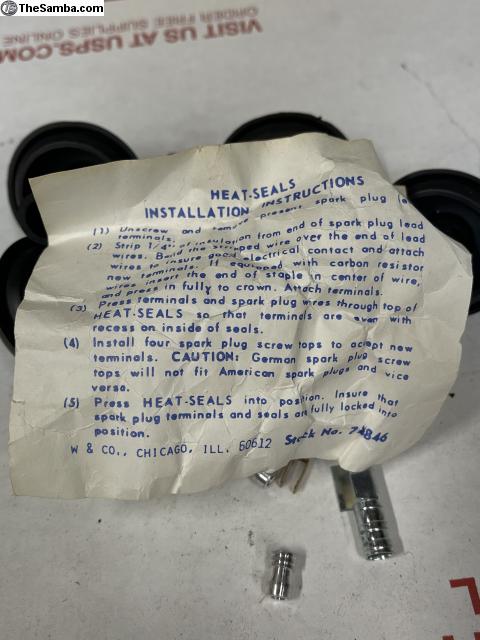 TheSamba.com
VISIT US AT USPS.COM
ORDER FREE SUPPLIES ONLINE
HEAT-SEALS
INSTALLATION INSTRUCTIONS
(1) Unscrew and remove present spark plug lead
terminals.
(2) Strip 1/4" of insulation from end of spark plug lead
wires. Bend the stripped wire over the end of lead
wires to insure good electrical contact and attach
new terminals. If equipped with carbon resistor
wires insert the end of staple in center of wire,
and press in fully to crown. Attach terminals.
(3) Press terminals and spark plug wires through top of
HEAT-SEALS so that terminals are even with
recess on inside of seals.
(4) Install four spark plug screw tops to accept new
terminals. CAUTION: German spark plug screw
tops will not fit American spark plugs and vice
versa.
(5) Press HEAT-SEALS into position. Insure that
spark plug terminals and seals are fully locked into
position.
W & CO., CHICAGO, ILL. 60612 Stock No. 74846